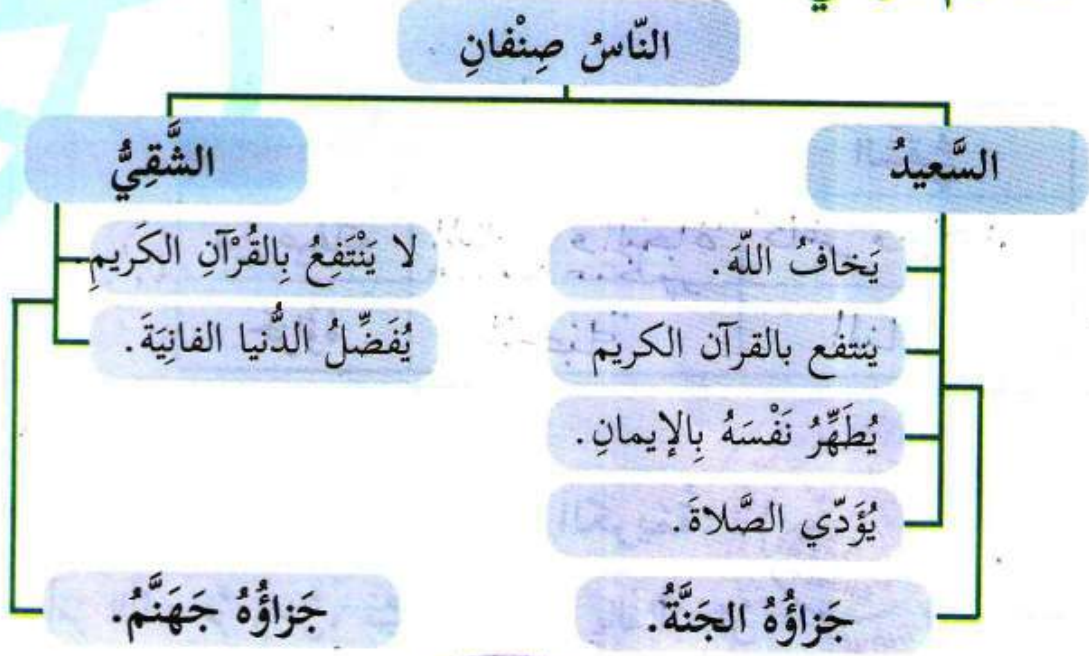 النّاسُ صِنْفانِ
السَّعيدُ
يَخافُ اللّهَ.
ينتفع بالقرآن الكريم.
يُطَهِّرُ نَفْسَهُ بِالإيمانِ.
يُؤَدّي الصَّلاةَ.
جَزاؤُهُ الجَنَّةُ.
الشَّقِيُّ
لا يَنْتَفِعُ بِالقُرْآنِ الكَريمِ.
يُفَضِّلُ الدُّنيا الفانِيَةَ.
جَزاؤُهُ جَهَنَّمُ.